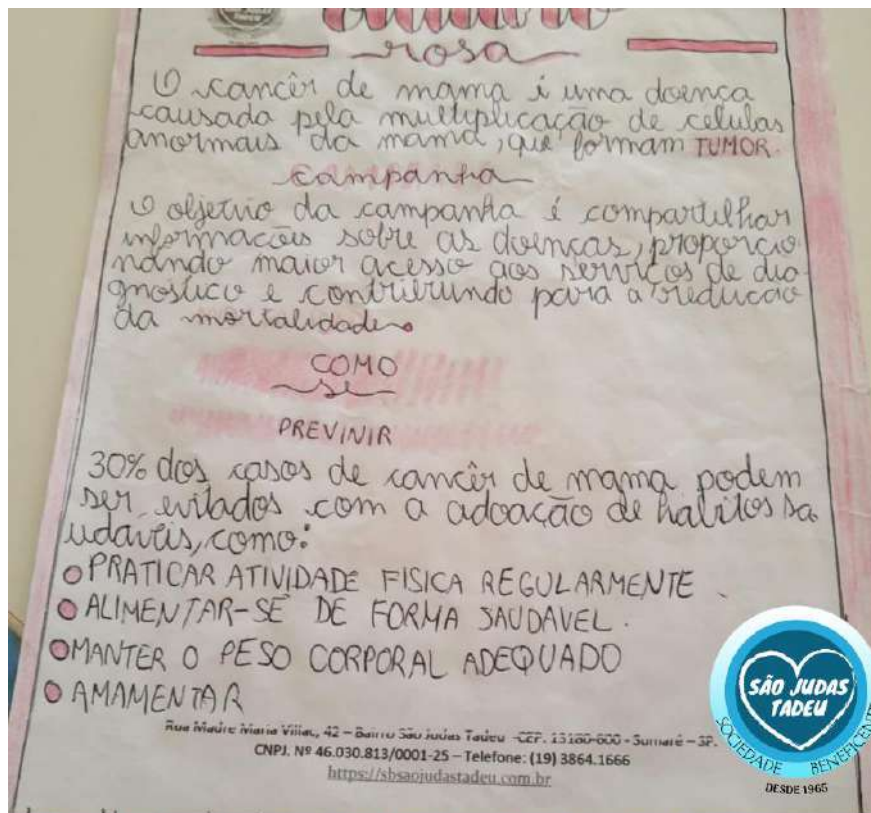 rosa
O cancêr de mama é uma doença
causada pela multiplicação de celulas
anormais da mama, que formam TUMOR.
Campanha
O objetivo da campanha é compartilhar
informacões sobre as doenças, proporcio
nando maior acesso aos serviços de dia
gnostico e contribuindo para a reducao
da mortalidade.
COMO
se
PREVINIR
30% dos casos de cancêr de mama podem
ser evitados com a adoação de habitos sa
udaveis, como:
PRATICAR ATIVIDADE FISICA REGULARMENTE.
ALIMENTAR-SE DE FORMA SAUDAVEL.
MANTER O PESO CORPORAL ADEQUADO
AMAMENTAR
Rua Madre Maria Villac, 42 – Bairro São Judas Tadeu -CEP. 13180-600 - Sumaré – SP.
CNPJ. Nº 46.030.813/0001-25 – Telefone: (19) 3864.1666
https://sbsaojudastadeu.com.br
SÃO JUDAS
TADEU
SOCIEDADE BENEFICENTE
DESDE 1965